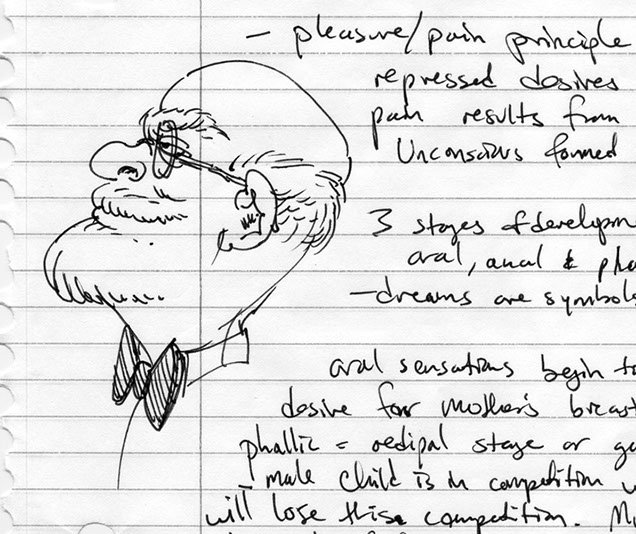 - pleasure/pain principle
repressed desires
pain results from
Unconscious formed
3 stages of developm
oral, anal & pha
-dreams are symbols
oral sensations begin to
desire for mother's breast
phallic = oedipal stage or g
- male child is in competition w
will lose this competition. M